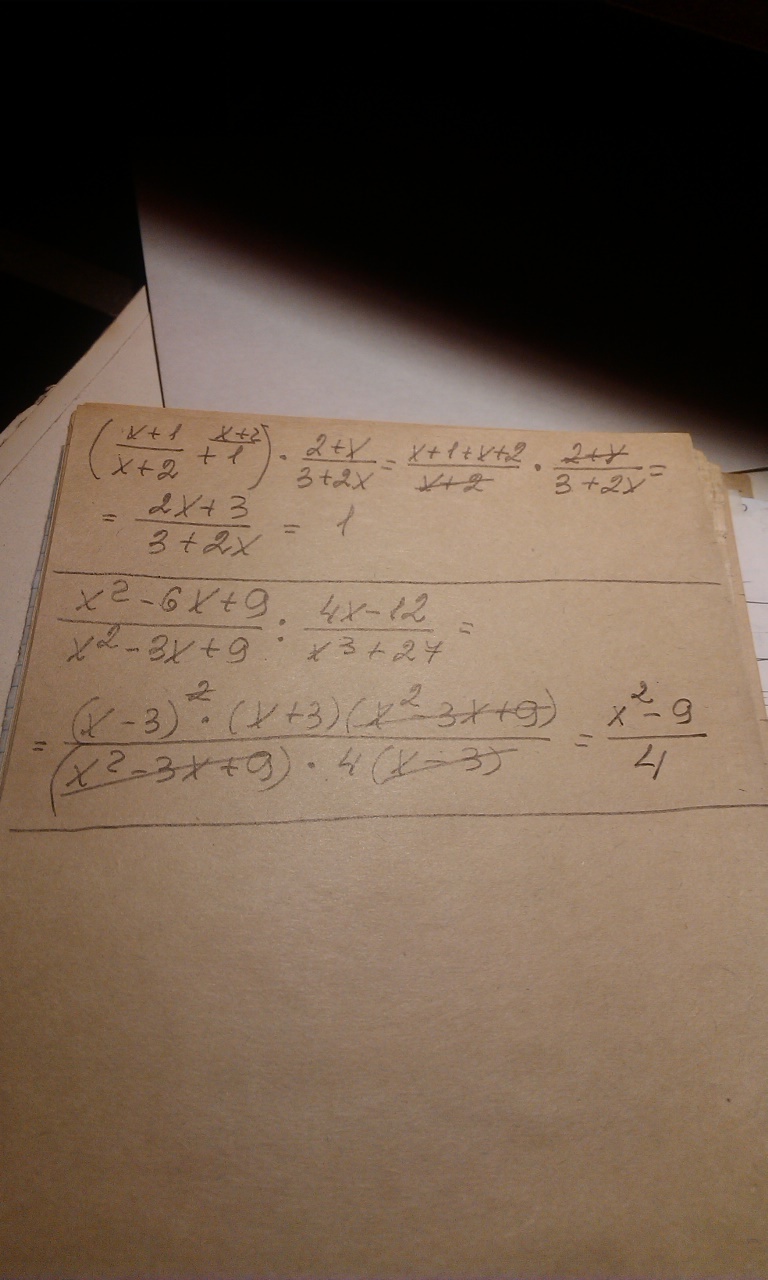 (x+1/x+2 + 1^{x+2}) · 2+x/3+2x = x+1+x+2/x+2 · 2+x/3+2x =
= 2x+3/3+2x = 1
x²-6x+9/x²-3x+9 : 4x-12/x³+27 =
= (x-3)²·(x+3)(x²-3x+9)/(x²-3x+9)·4(x-3) = x²-9/4